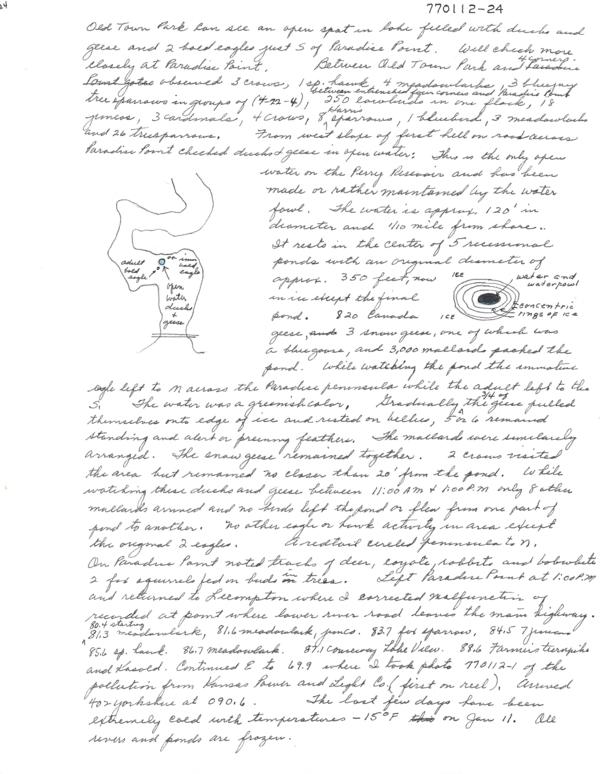 24
770112-24
Old Town Park can see an open spot in lake filled with ducks and
geese and 2 bald eagles just S of Paradise Point. Will check more
closely at Paradise Point. Between Old Town Park and Paradise
4 corners.
Point gates observed 3 crows, 1 sp. hawk, 4 meadowlarks, 3 bluejay
between entrenched four corners and Paradise Point
tree sparrows in groups of (4-22-4), 250 cowbirds in one flock, 18
juncos, 3 cardinals, 4 crows, 8 Harris sparrows, 1 bluebird, 3 meadowlarks
and 26 treesparrows. From west slope of first hill on road across
Paradise Point checked ducks & geese in open water. This is the only open
water on the Perry Reservoir and has been
made or rather maintained by the water
fowl. The water is approx. 120' in
diameter and 1/10 mile from shore.
It rests in the center of 5 recessional
ponds with an original diameter of
approx. 350 feet, now
in ice except the final
pond. 820 Canada
geese, and 3 snow geese, one of which was
a blue goose, and 3,000 mallards packed the
pond. While watching the pond the immature
adult
bald
eagle
imm
bald
eagle
open
water
ducks
+
geese
ICE
water and
waterfowl
concentric
rings of ice
ICE
eagle left to N across the Paradise peninsula while the adult left to the
S. The water was a greenish color. Gradually 3/4 of the geese pulled
themselves onto edge of ice and rested on bellies, 5 or 6 remained
standing and alert or preening feathers. The mallards were similarly
arranged. The snow geese remained together. 2 crows visited
the area but remained no closer than 20' from the pond. While
watching these ducks and geese between 11:00 AM & 1:00 P.M only 8 other
mallards arrived and no birds left the pond or flew from one part of
pond to another. No other eagle or hawk activity in area except
the original 2 eagles. A redtail circled peninsula to N.
On Paradise Point noted tracks of deer, coyote, rabbits and bobwhite
2 fox squirrels fed on buds in trees. Left Paradise Point at 1:00 P.M
and returned to Lecompton where I corrected malfunction of
recorded at point where lower river road leaves the main highway.
80.4 starling
81.3 meadowlark, 81.6 meadowlark, junco. 83.7 fox sparrow, 84.5 7 juncos
85.6 sp. hawk. 86.7 meadowlark. 87.1 Causeway Lake View. 88.6 Farmers turnpike
and Kasold. Continued E to 69.9 where I took photo 770112-1 of the
pollution from Kansas Power and Light Co. (first on reel). Arrived
402 Yorkshire at 090.6. The last few days have been
extremely cold with temperatures -15°F on Jan 11. All
rivers and ponds are frozen.